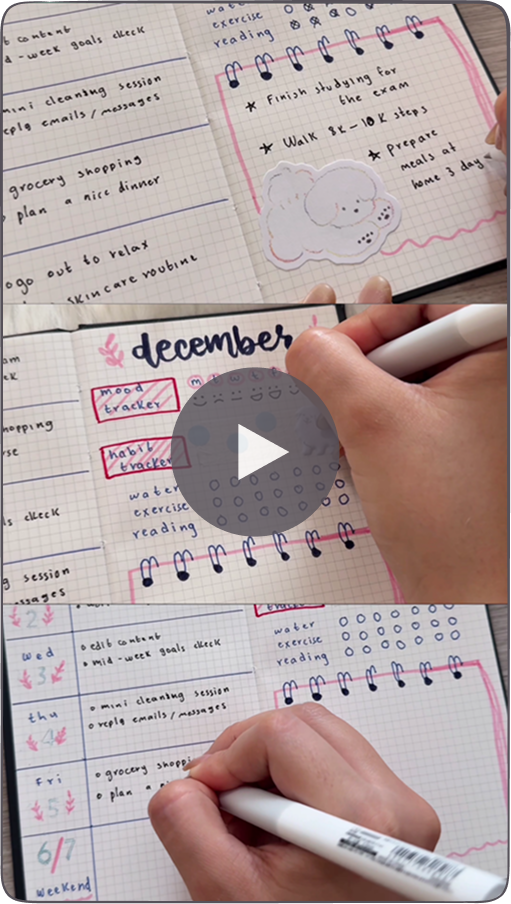 edit content
mid-week goals check
mini cleaning session
reply emails / messages
grocery shopping
plan a nice dinner
go out to relax
skincare routine
water
exercise
reading
Finish studying for
the exam
Walk 8K-10K steps
Prepare
meals at
home 3 day
december
mood
tracker
m t w t f
habit
tracker
water
exercise
reading
shopping
check
session
messages
2
wed
3
edit content
mid-week goals check
thu
4
mini cleaning session
reply emails / messages
fri
5
grocery shoppi
plan a
6/7
weekend
tracker
water
exercise
reading